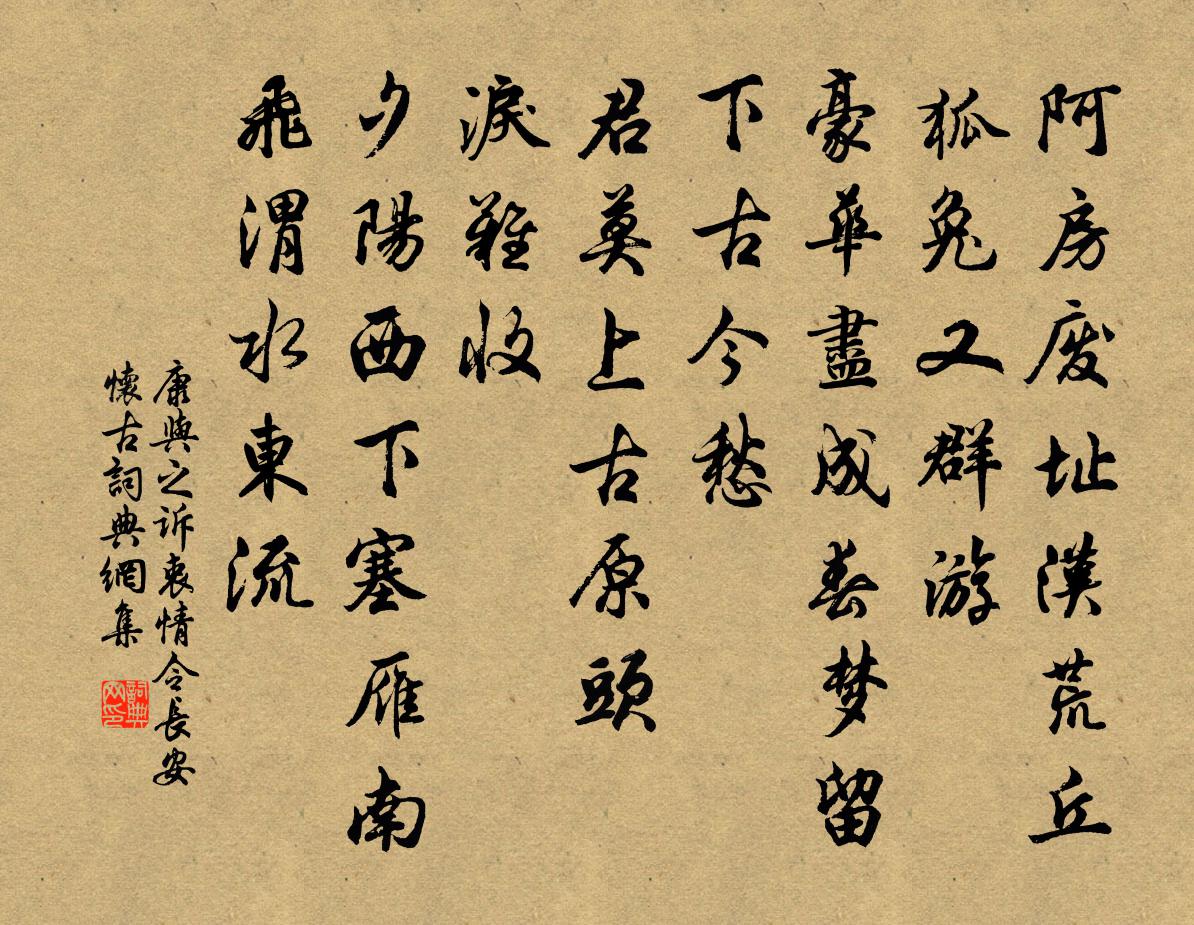 阿房废址漢荒丘
狐兔又群游
豪華盡成春梦留
下古今愁
君莫上古原頭
淚難收
夕陽西下塞雁南
飛渭水東流
康與之诉衷情令長安
懷古詞典網集
詞典网印